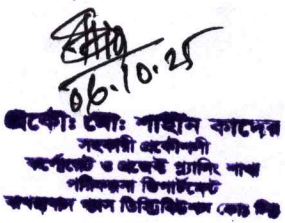 ০৬.১০.২৫
প্রকৌঃ মোঃ শাহীন কাদের
সহকারী প্রকৌশলী
কর্পোরেট ও প্রজেক্ট প্ল্যানিং শাখা
পরিকল্পনা ডিপার্টমেন্ট
গ্যাস ডিস্ট্রিবিউশন কোঃ লিঃ